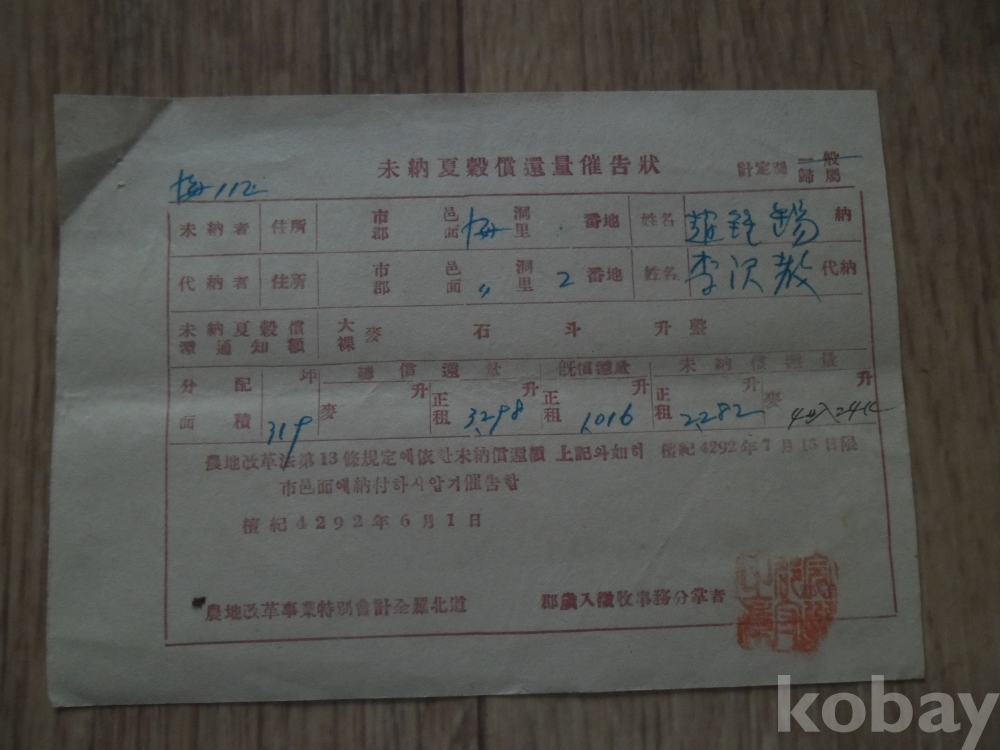 未納夏穀償還量催告狀
計定別 一般 歸屬
梅112
未納者 住所 市郡 邑面 梅 洞里 番地 姓名 趙 錫 納
代納者 住所 市郡 邑面 〃 洞里 2 番地 姓名 李沢敎 代納
未納夏穀償還通知額 大裸麥 石 斗 升 整
分配面積 坪 總償還量 既償還量 未納償還量
319 麥 正租 升 3,298 正租 升 1,016 正租 升 2,282 麥 升
農地改革法第13條規定에依한未納償還額 上記와如히 檀紀4292年7月15日限
市邑面에納付하시압기催告함
檀紀4292年6月1日
農地改革事業特別會計全羅北道 郡歲入徵收事務分掌者
kobay